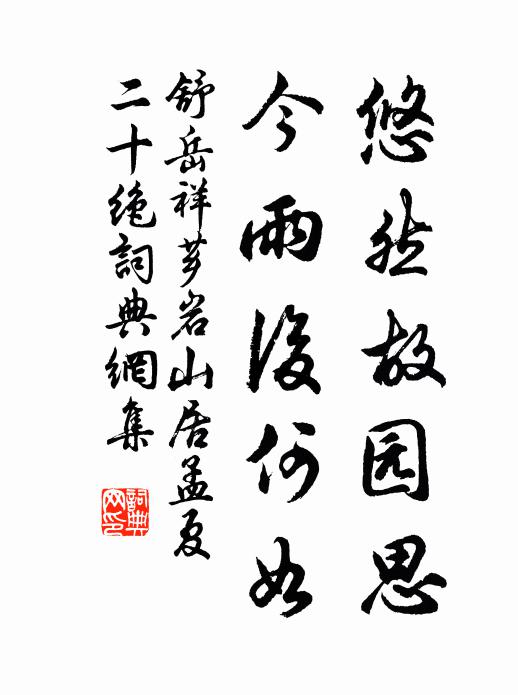 悠然故园思
今雨後何如
舒岳祥芗岩山居孟夏
二十绝詞典網集
詞典网印